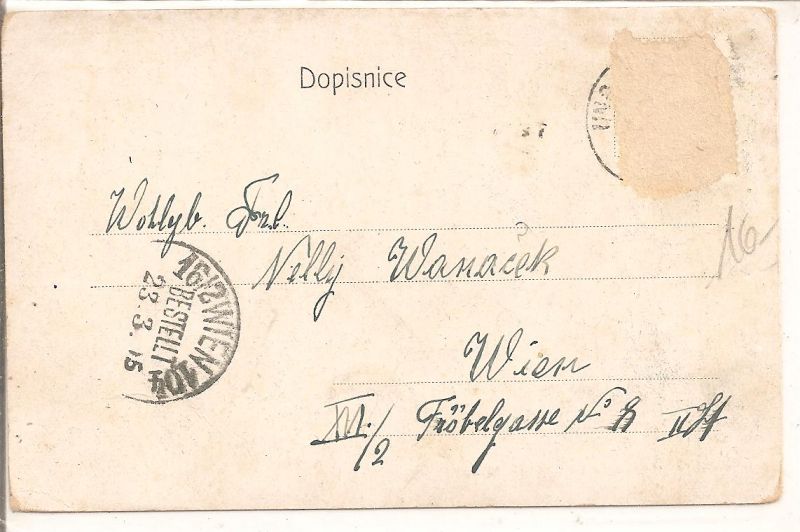 Dopisnice
Wohlgb. Frl.
Nelly Wanaček
Wien
XVI./2 Fröbelgasse No 8 II St
16/2 WIEN 104
BESTELLT
23 3. 05
16